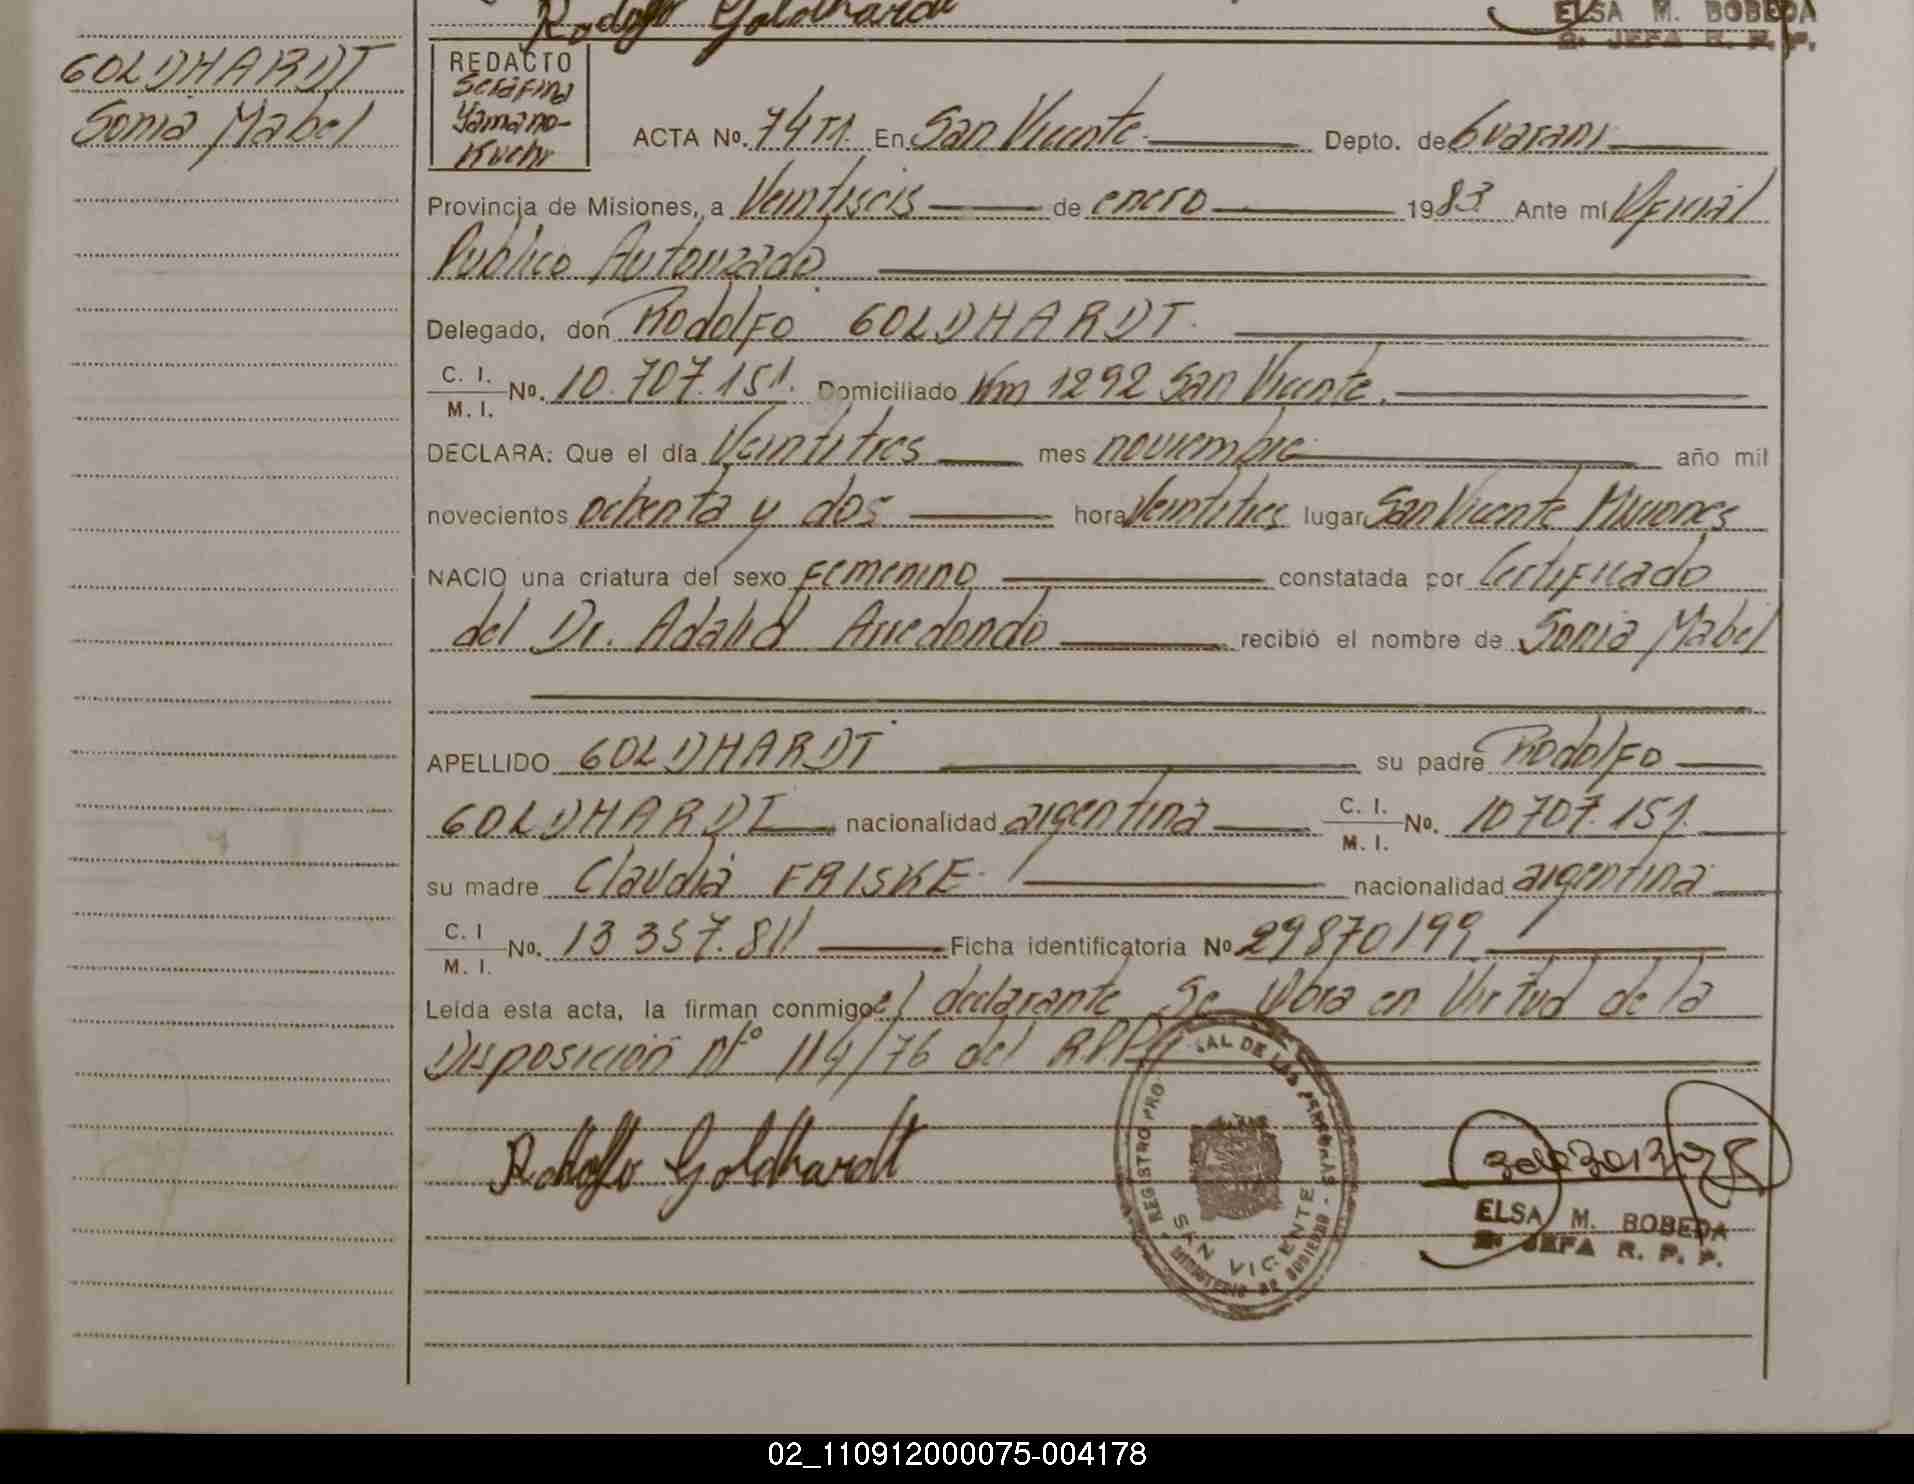 Rodolfo Goldhardt
ELSA M. BOBEDA
2º JEFA R. P. P.
GOLDHARDT
Sonia Mabel
REDACTO
Serafina
Yamano-
Kuchr
ACTA No. 74 T1. En San Vicente Depto. de Guarani
Provincia de Misiones, a Veintiseis de enero 1983 Ante mi Oficial
Publico Autorizado
Delegado, don Rodolfo GOLDHARDT.
C. I.
M. I. No. 10.707.151. Domiciliado Km 1292 San Vicente.
DECLARA: Que el día Veintitres mes noviembre año mil
novecientos ochenta y dos hora Veintitres lugar San Vicente Misiones
NACIO una criatura del sexo Femenino constatada por Certificado
del Dr. Adalid Arredondo recibió el nombre de Sonia Mabel
APELLIDO GOLDHARDT su padre Rodolfo
GOLDHARDT nacionalidad argentina C. I. M. I. No. 10 707.151.
su madre Claudia FRISKE. nacionalidad argentina
C. I M. I. No. 13 357.811 Ficha identificatoria No 29870199
Leída esta acta, la firman conmigo el declarante Se labra en Virtud de la
Disposición Nº 114/76 del RPP
Rodolfo Goldhardt
REGISTRO PRO AL DE LAS PERSONAS - MINISTERIO DE GOBIERNO
SAN VICENTE
ELSA M. BOBEDA
2º JEFA R. P. P.
02_110912000075-004178